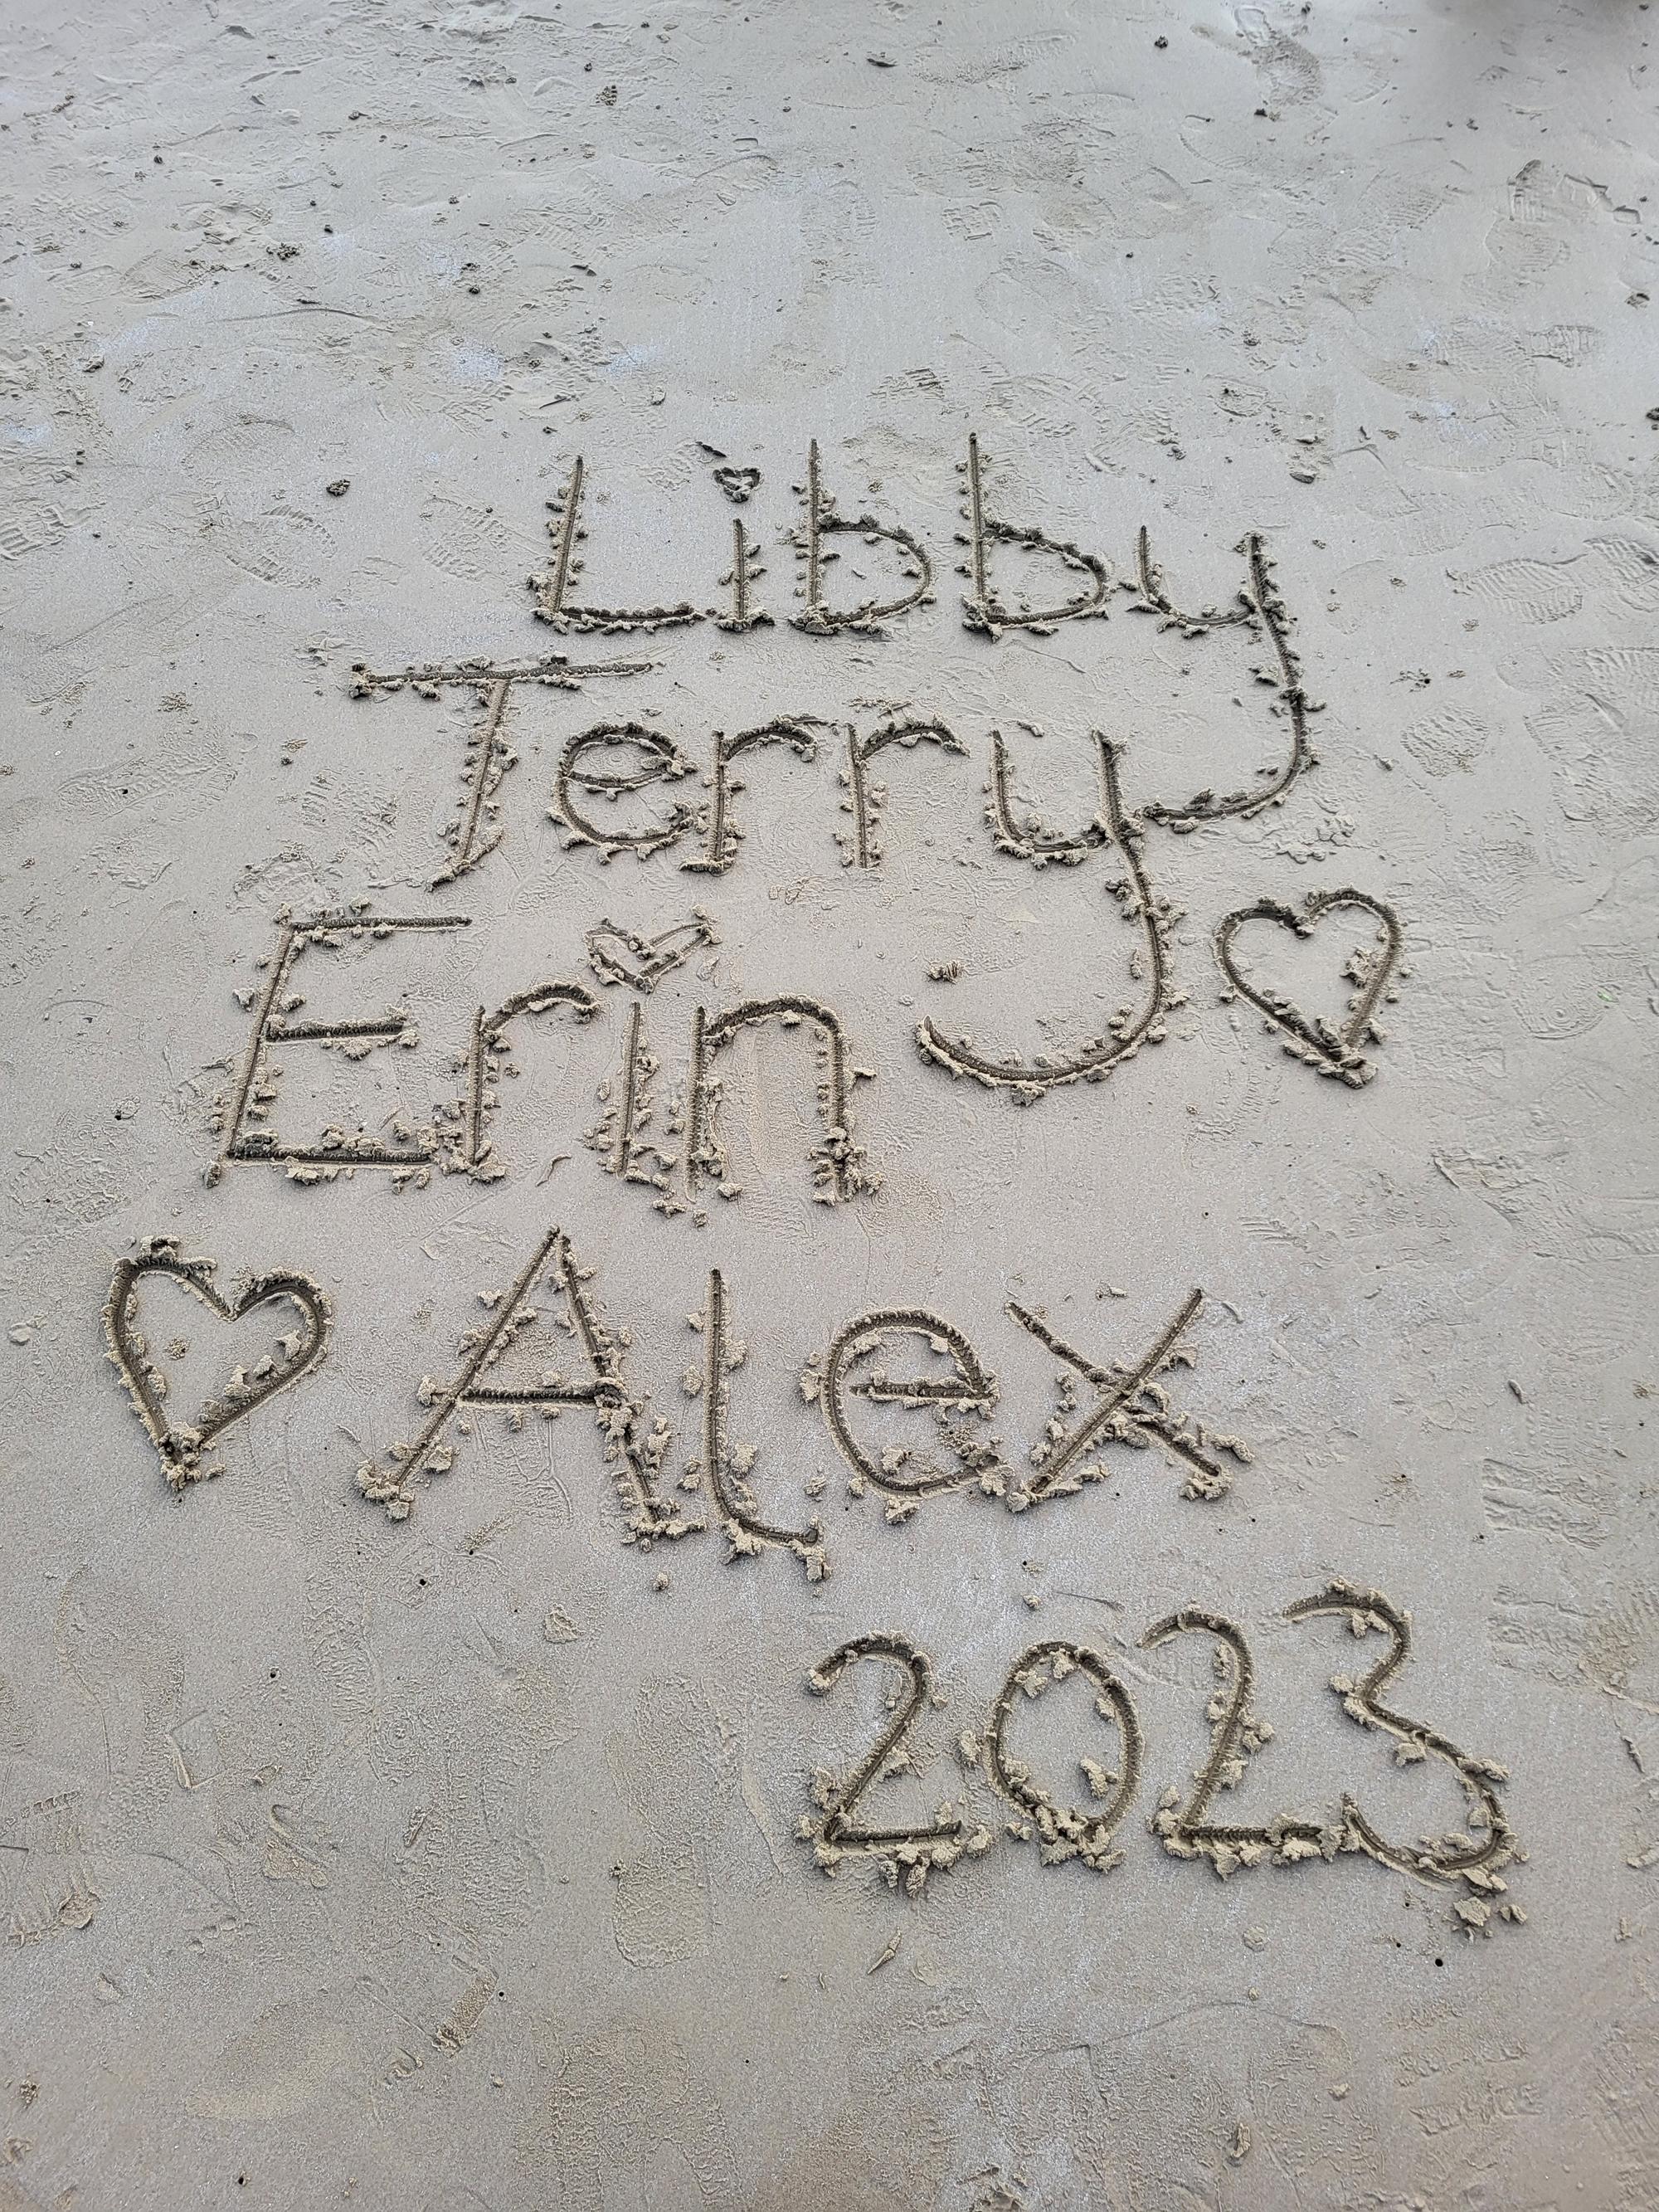 Libby
Terry
Erin
Alex
2023